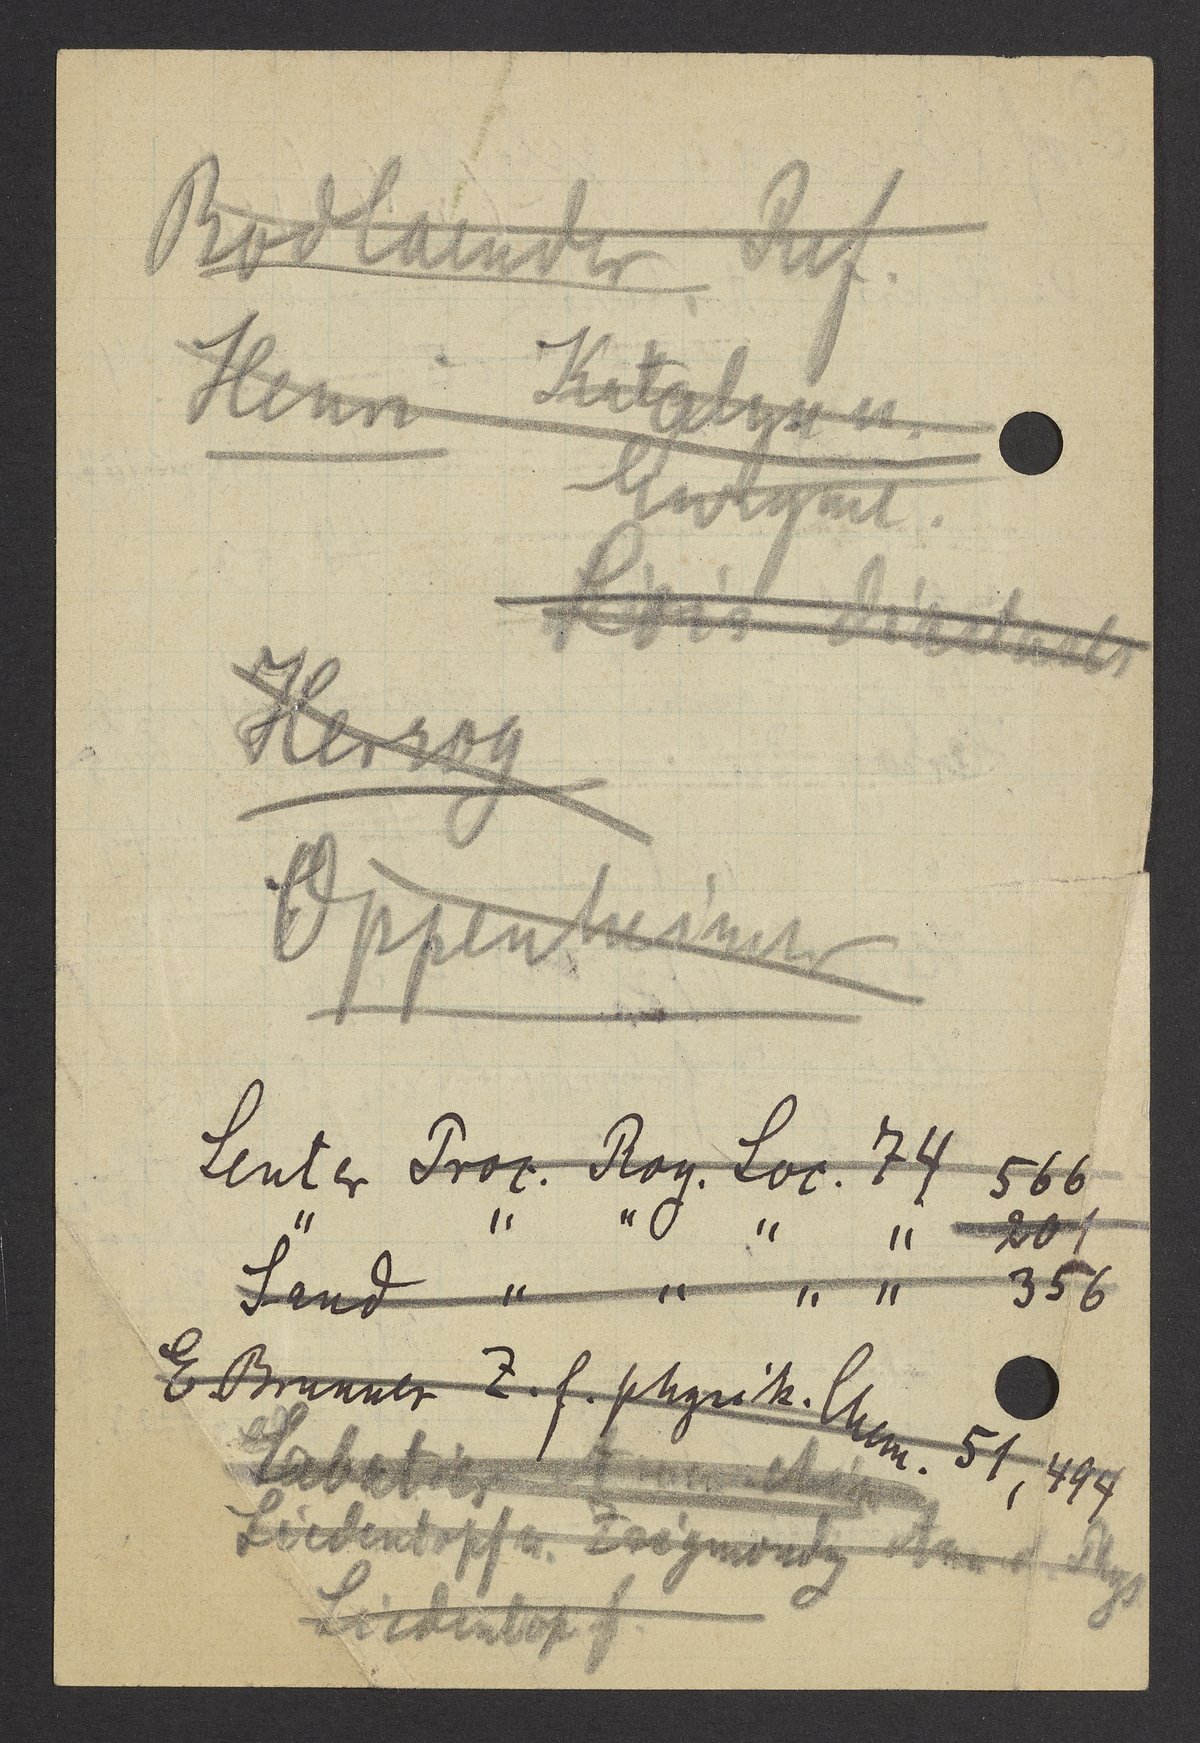 Bodlaender, Ref.
Henri Katalyse u.
Enzyme.
diastases
Herzog
Oppenheimer
Senter Proc. Roy. Soc. 74 566
" " " " " 201
Sand " " " " 356
E. Brunner Z. f. physik. Chem. 51, 494
Sabatier
Siedentopf u. Zsigmondy Ann d. Phys
Siedentopf.